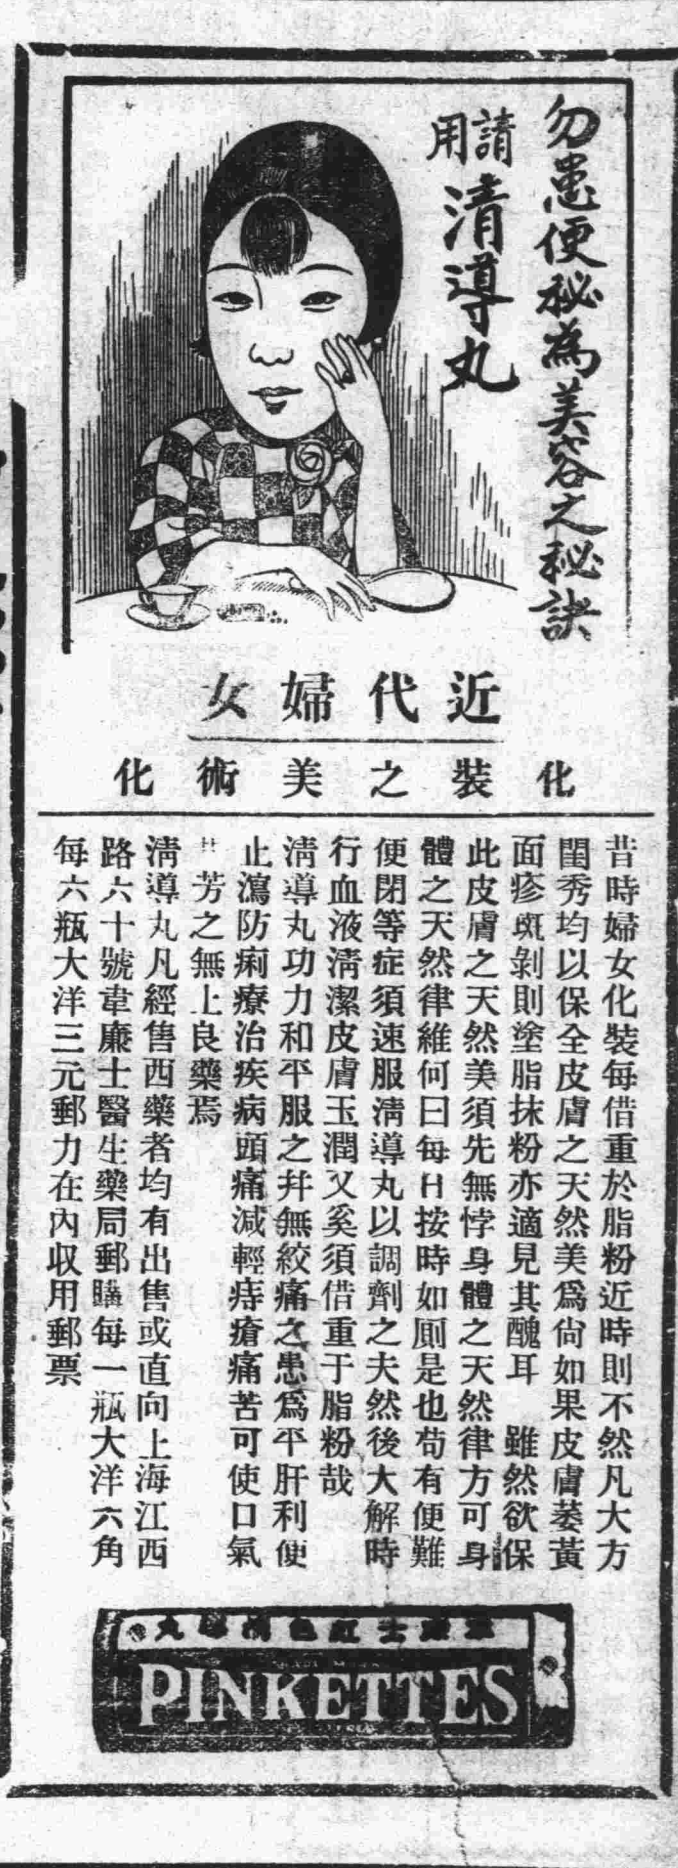 勿患便秘為美容之秘訣
請用
清導丸
近代婦女
化裝之美術化
昔時婦女化裝每借重於脂粉近時則不然凡大方
閨秀均以保全皮膚之天然美爲尙如果皮膚萎黃
面疹斑剝則塗脂抹粉亦適見其醜耳　雖然欲保
此皮膚之天然美須先無悖身體之天然律方可身
體之天然律維何曰每日按時如厠是也苟有便難
便閉等症須速服淸導丸以調劑之夫然後大解時
行血液淸潔皮膚玉潤又奚須借重于脂粉哉
淸導丸功力和平服之幷無絞痛之患爲平肝利便
止瀉防痢療治疾病頭痛減輕痔瘡痛苦可使口氣
芳之無上良藥焉
淸導丸凡經售西藥者均有出售或直向上海江西
路六十號韋廉士醫生藥局郵購每一瓶大洋六角
每六瓶大洋三元郵力在內収用郵票
PINKETTES